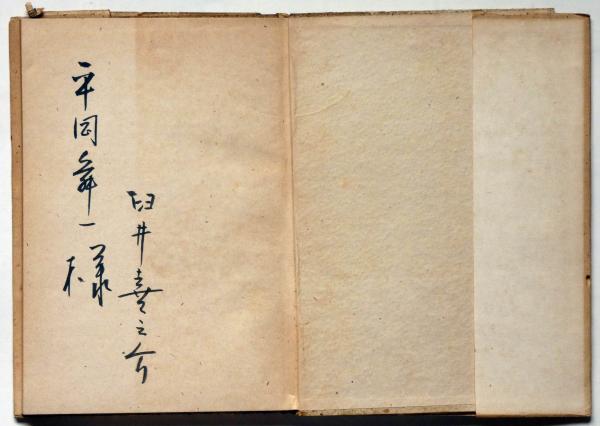 臼井喜之介
平岡舜一様